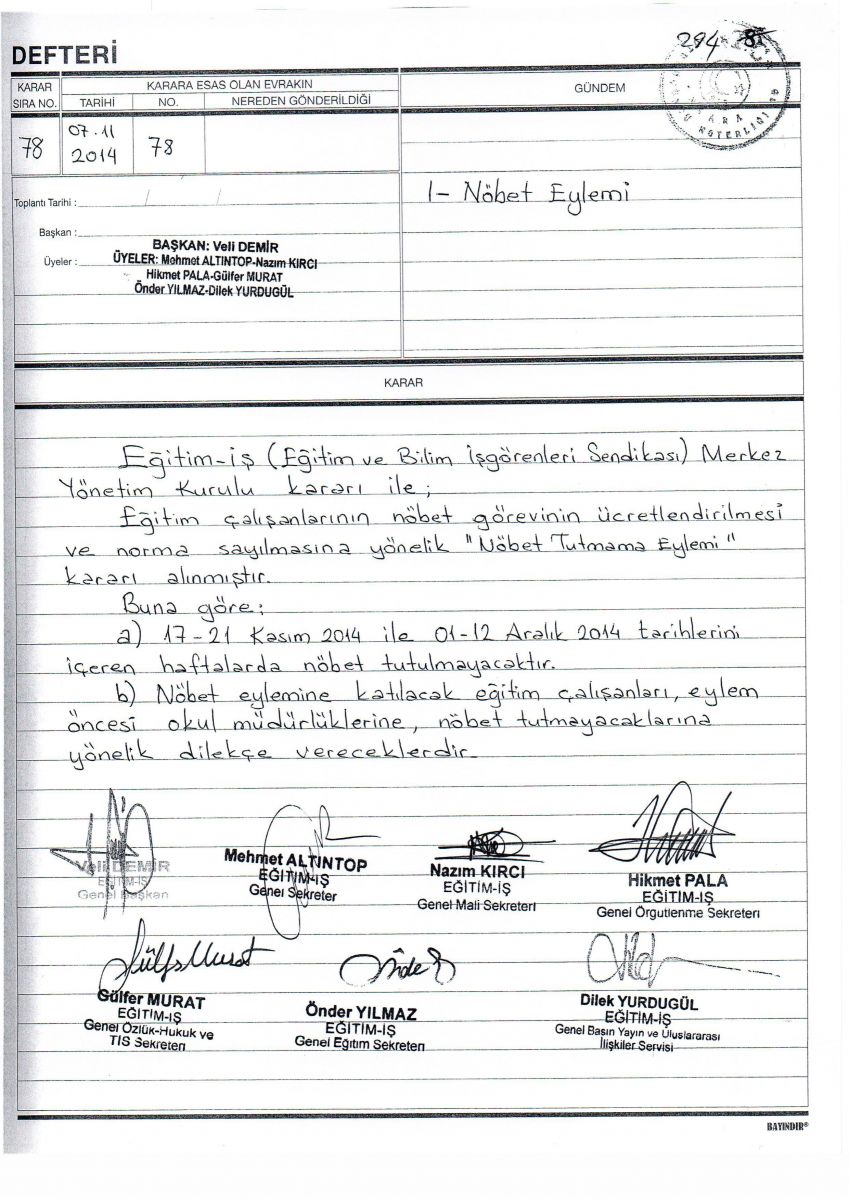 294
DEFTERİ
KARAR
SIRA NO.
KARARA ESAS OLAN EVRAKIN
TARİHİ
NO.
NEREDEN GÖNDERİLDİĞİ
GÜNDEM
78
07.11
2014
78
1- Nöbet Eylemi
Toplantı Tarihi : / /
Başkan :
Üyeler :
BAŞKAN: Veli DEMİR
ÜYELER: Mehmet ALTINTOP-Nazım KIRCI
Hikmet PALA-Gülfer MURAT
Önder YILMAZ-Dilek YURDUGÜL
KARAR
Eğitim-iş (Eğitim ve Bilim işgörenleri Sendikası) Merkez
Yönetim Kurulu kararı ile ;
Eğitim çalışanlarının nöbet görevinin ücretlendirilmesi
ve norma sayılmasına yönelik "Nöbet Tutmama Eylemi"
kararı alınmıştır.
Buna göre;
a) 17-21 Kasım 2014 ile 01-12 Aralık 2014 tarihlerini
içeren haftalarda nöbet tutulmayacaktır.
b) Nöbet eylemine katılacak eğitim çalışanları, eylem
öncesi okul müdürlüklerine, nöbet tutmayacaklarına
yönelik dilekçe vereceklerdir.
Veli DEMİR
EĞİTİM-İŞ
Genel Başkan
Mehmet ALTINTOP
EĞİTİM-İŞ
Genel Sekreter
Nazım KIRCI
EĞİTİM-İŞ
Genel Mali Sekreteri
Hikmet PALA
EĞİTİM-İŞ
Genel Örgütlenme Sekreteri
Gülfer MURAT
EĞİTİM-İŞ
Genel Özlük-Hukuk ve
TİS Sekreteri
Önder YILMAZ
EĞİTİM-İŞ
Genel Eğitim Sekreteri
Dilek YURDUGÜL
EĞİTİM-İŞ
Genel Basın Yayın ve Uluslararası
İlişkiler Servisi
BAYINDIR®